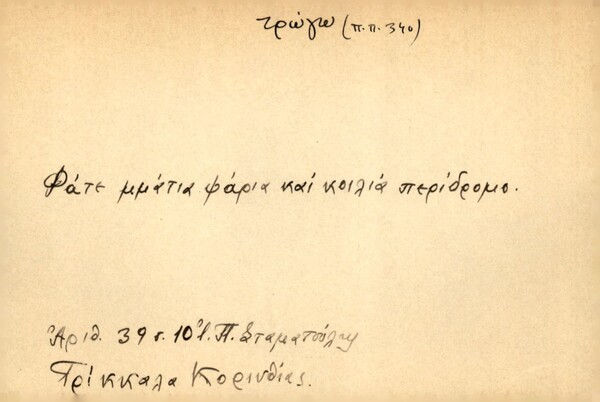 τρώγω (π.π. 340)
Φάτε μμάτια ψάρια καί κοιλιά περίδρομο.
Ἀριθ. 39 σ. 10 Ἰ. Π. Σταματούλη
Τρίκκαλα Κορινθίας.